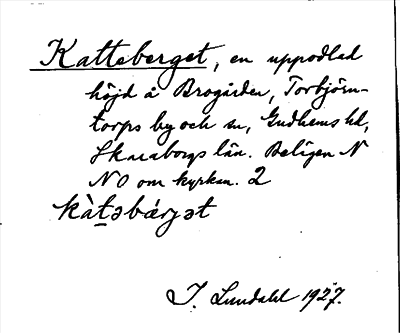 Katteberget, en uppodlad
höjd å Brogården, Torbjörn-
torps by och sn, Gudhems hd,
Skaraborgs län. Belägen N
NO om kyrkan. 2
kàt̠əbárjət
I. Lundahl 1927.